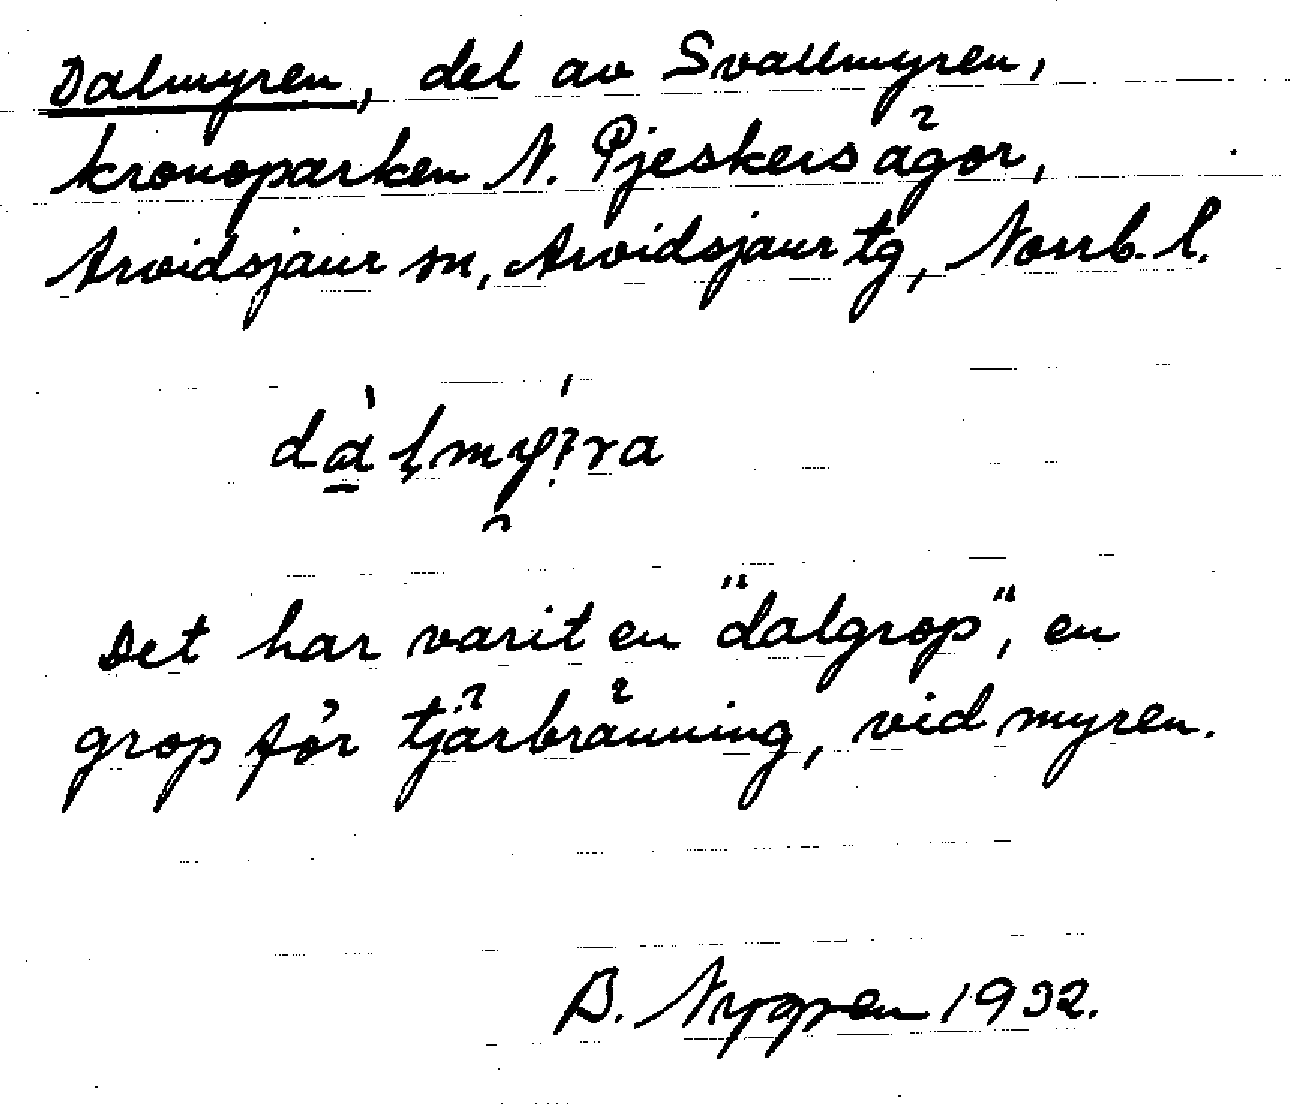 Dalmyren, del av Svallmyren,
kronoparken N. Pjeskers ägor,
Arvidsjaur sn, Arvidsjaur tg, Norrb. l.
Det har varit en "dalgrop", en
grop för tjärbränning, vid myren.
B. Nygren 1932.